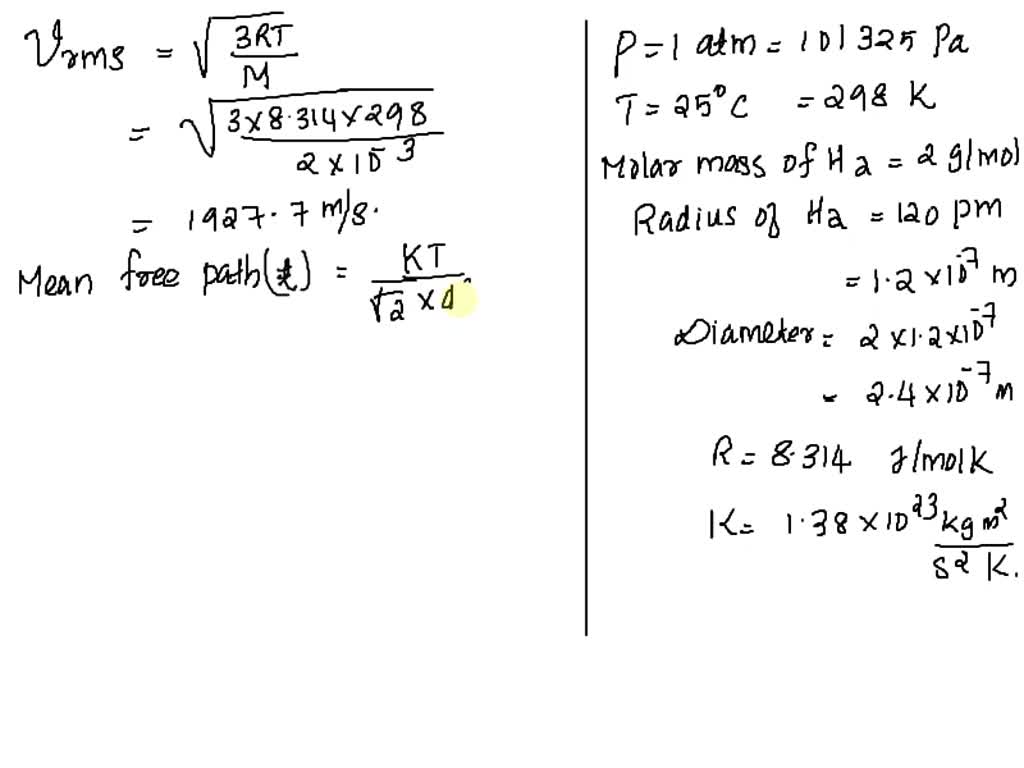 Vrms = √(3RT/M)
= √(3×8.314×298 / 2×10⁻³)
= 1927.7 m/s.
Mean free path(ℓ) = KT / √2 × d
P = 1 atm = 101325 Pa
T = 25°C = 298 K
Molar mass of H2 = 2 g/mol
Radius of H2 = 120 pm
= 1.2 ×10⁻⁷ m
Diameter = 2 ×1.2×10⁻⁷
= 2.4 ×10⁻⁷ m
R = 8.314 J/molK
K = 1.38 ×10²³ kg m² / s² K.